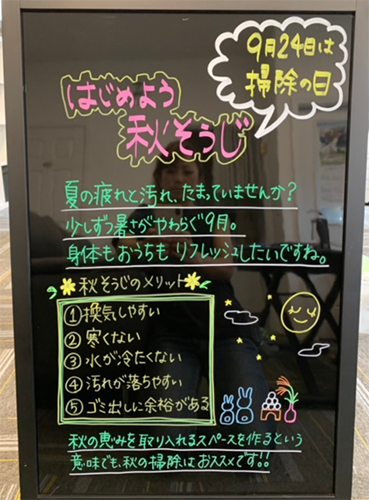 9月24日は
掃除の日
はじめよう
秋そうじ
夏の疲れと汚れ、たまっていませんか?
少しずつ暑さがやわらぐ9月。
身体もおうちもリフレッシュしたいですね。
秋そうじのメリット
①換気しやすい
②寒くない
③水が冷たくない
④汚れが落ちやすい
⑤ゴミ出しに余裕がある
秋の恵みを取り入れるスペースを作るという
意味でも、秋の掃除はおススメです!!